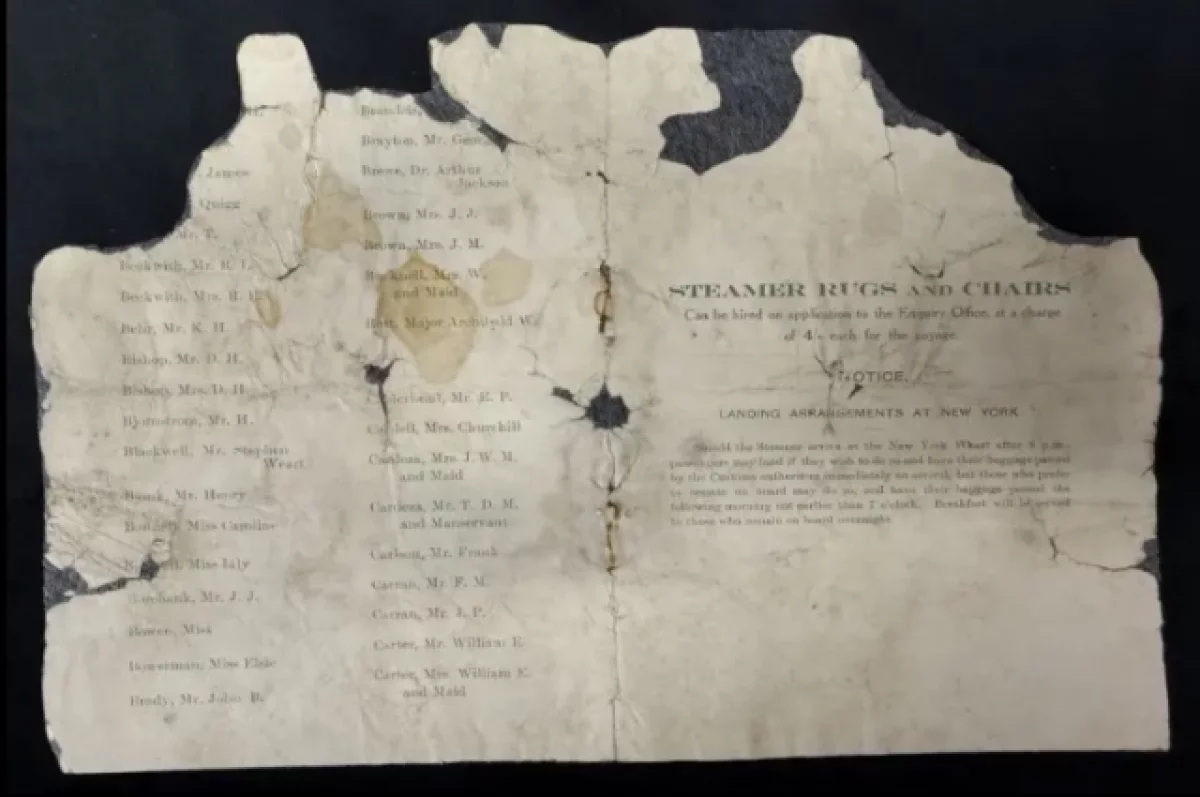 James
Quigg
Mr. T.
Beckwith, Mr. R. L.
Beckwith, Mrs. R. L.
Behr, Mr. K. H.
Bishop, Mr. D. H.
Bishop, Mrs. D. H.
Bjornstrom, Mr. H.
Blackwell, Mr. Stephen
Weart
Mr. Henry
Miss Caroline
Miss Lily
Mr. J. J.
Bowen, Miss
Bowerman, Miss Elsie
Brady, Mr. John B.
Brandeis,
Brayton, Mr. Geor
Brewe, Dr. Arthur
Jackson
Brown, Mrs. J. J.
Brown, Mrs. J. M.
Bucknell, Mrs. W.
and Maid
Butt, Major Archibald W.
lderhead, Mr. E. P.
Mrs. Churchill
Cardeza, Mrs. J. W. M.
and Maid
Cardeza, Mr. T. D. M.
and Manservant
Carlson, Mr. Frank
Carran, Mr. F. M.
Carran, Mr. J. P.
Carter, Mr. William E.
Carter, Mrs. William E.
and Maid
STEAMER RUGS AND CHAIRS
Can be hired on application to the Enquiry Office, at a charge
of 4/- each for the voyage.
NOTICE.
LANDING ARRANGEMENTS AT NEW YORK
Should the Steamer arrive at the New York Wharf after 8 p.m.,
passengers may land if they wish to do so and have their baggage passed
by the Customs authorities immediately on arrival, but those who prefer
to remain on board may do so, and have their baggage passed the
following morning not earlier than 7 o'clock. Breakfast will be served
to those who remain on board overnight.